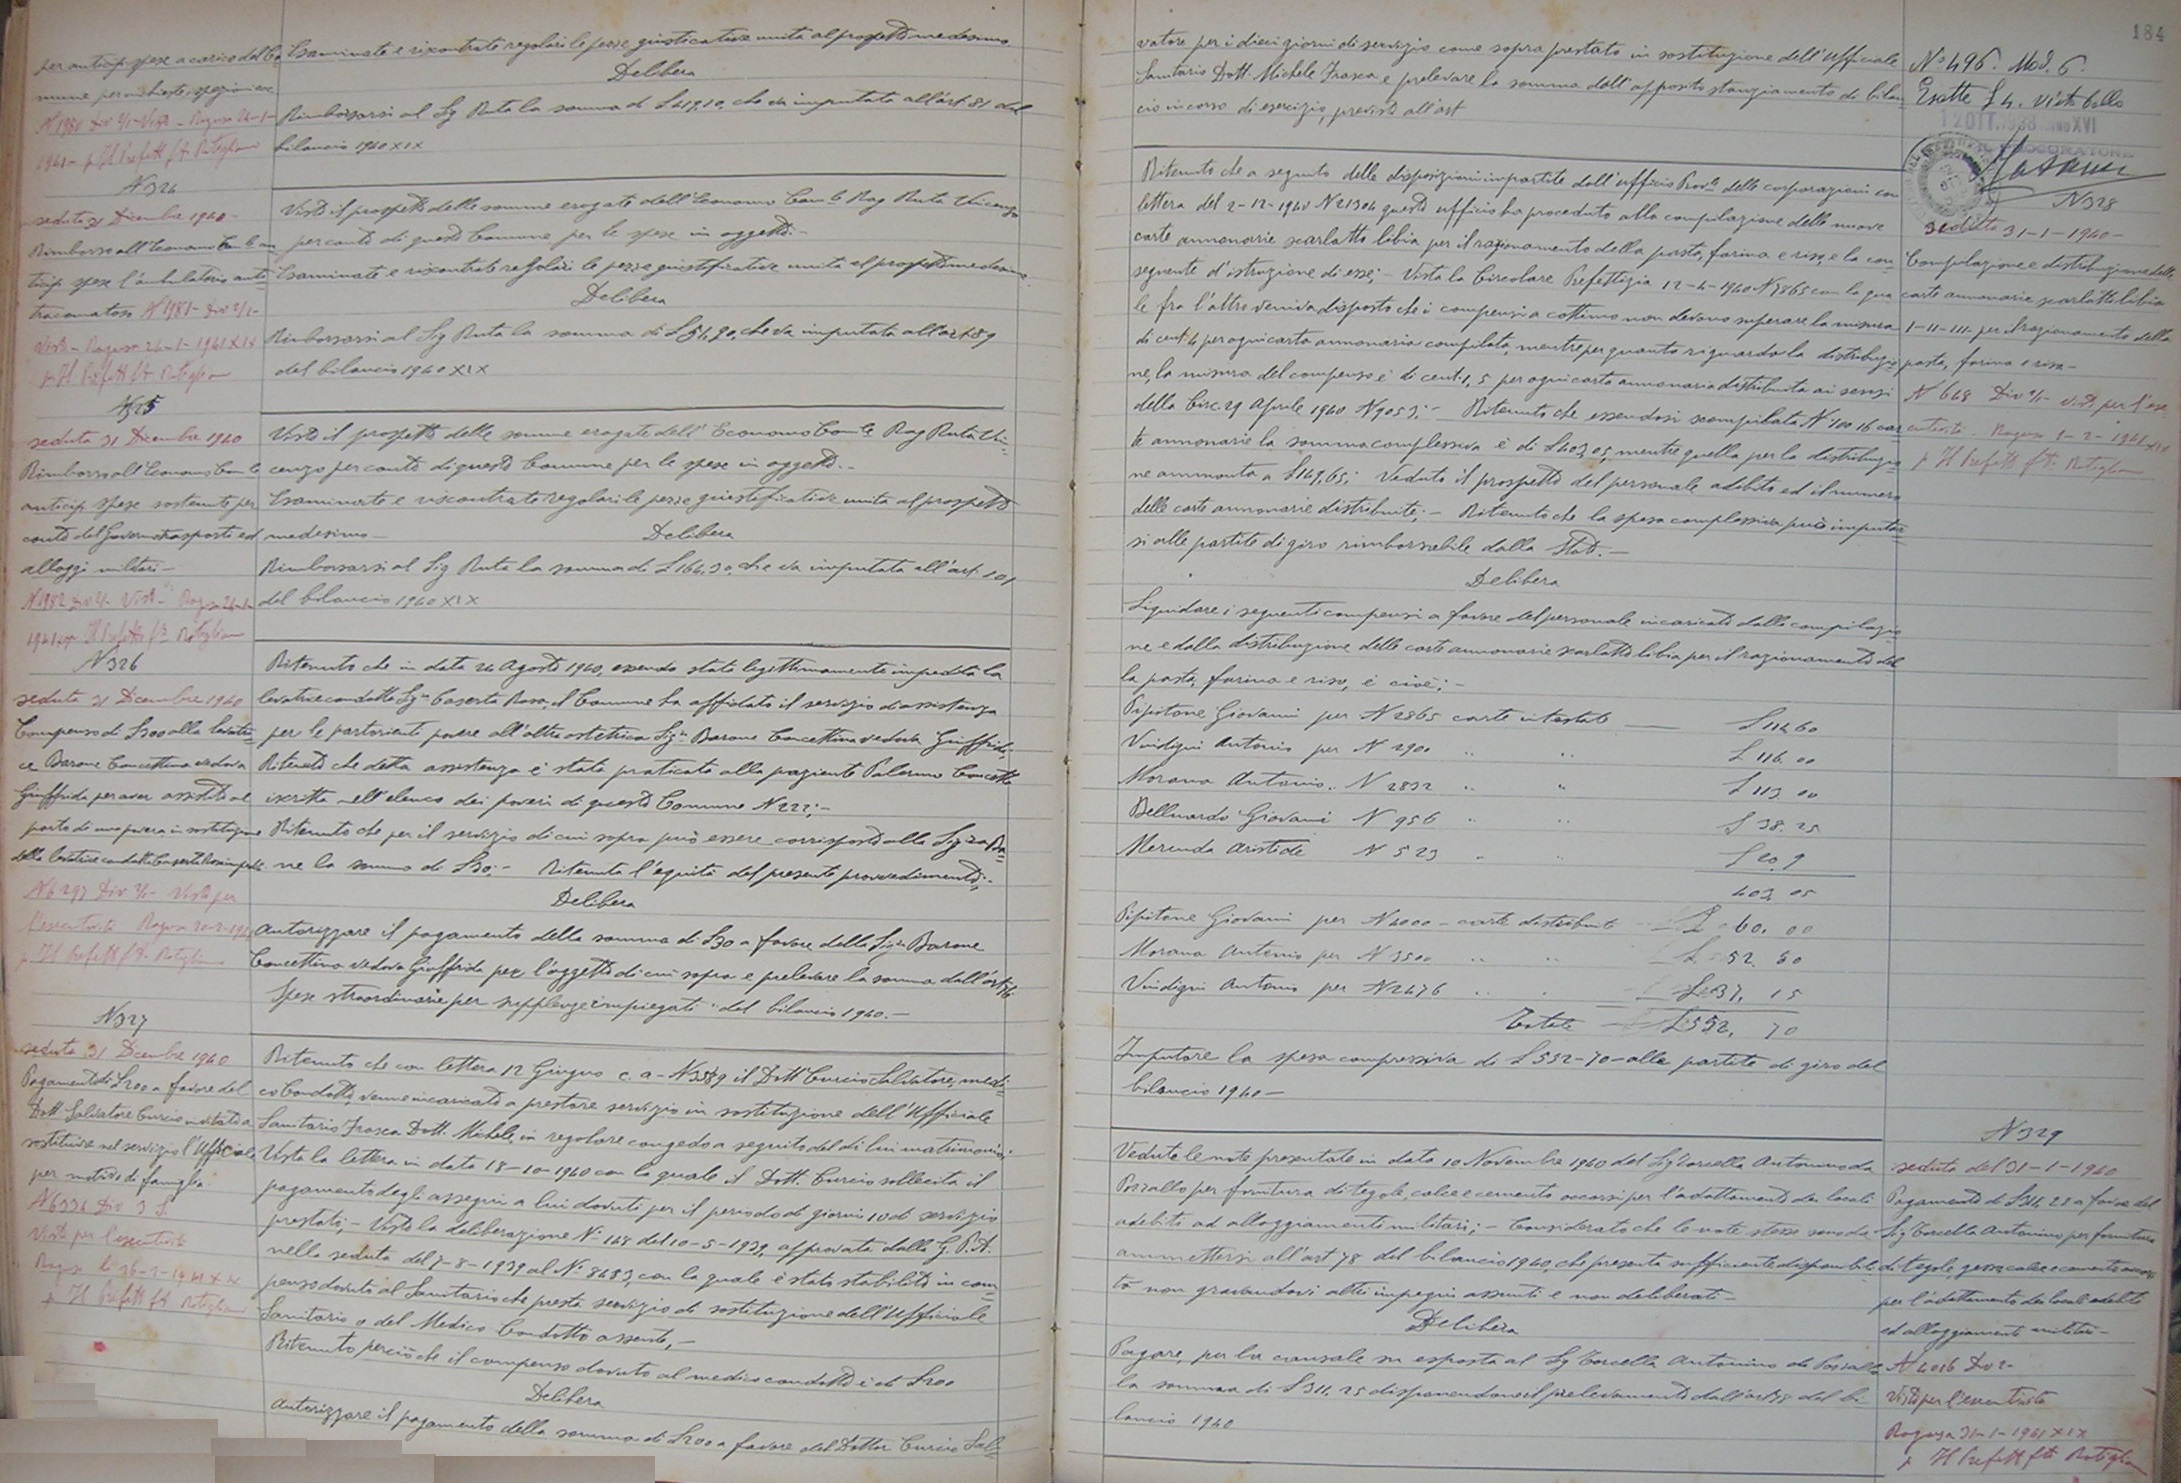 per anticip. spese a carico del Co
mune per inchieste, ispezioni ecc
N 1980 Div 2/1 - Visto - Ragusa 24-1-
1941 - p. Il Prefetto f.to Rotigliano
Esaminate e riscontrate regolari le pezze giustificative unite al prospetto medesimo
Delibera
Rimborsarsi al Sig Ruta la somma di £ 419,10, che va imputata all'art. 81 del
bilancio 1940 XIX
N 324
seduta 31 Dicembre 1940 -
Rimborso all'Economo Com.le an
ticip. spese l'ambulatorio anti=
tracomatoso N 1981 - Div 2/1 -
Visto - Ragusa 24-1-1941 XIX
p. Il Prefetto f.to Rotigliano
Visto il prospetto delle somme erogate dall'Economo Com.le Rag Ruta Vincenzo
per conto di questo Comune per le spese in oggetto. -
Esaminate e riscontrate regolari le pezze giustificative unite al prospetto medesimo
Delibera
Rimborsarsi al Sig Ruta la somma di £ 51,90, che va imputata all'art. 89
del bilancio 1940 XIX
N 325
seduta 31 Dicembre 1940
Rimborso all'Economo Com.le
anticip. spese sostenute per
conto del Governo trasporti ed
alloggi militari -
N 1982 Div 2/1 - Visto - Ragusa 24-1-
1941 XIX p. Il Prefetto f.to Rotigliano
Visto il prospetto delle somme erogate dall'Economo Com.le Rag Ruta Vin=
cenzo per conto di questo Comune per le spese in oggetto. -
Esaminate e riscontrate regolari le pezze giustificative unite al prospetto
medesimo -
Delibera
Rimborsarsi al Sig Ruta la somma di £ 164,30, che va imputata all'art. 101
del bilancio 1940 XIX
N 326
seduta 31 Dicembre 1940
Compenso di £ 30 alla levatri=
ce Barone Concettina vedova
Giuffrida per aver assistito al
parto di una povera in sostituzione
della levatrice condotta Caserta Rosa impedita
Div 2/1 - Visto per
l'esecutività Ragusa
p. Il Prefetto f.to Rotigliano
Ritenuto che in data 24 Agosto 1940, essendo stata legittimamente impedita la
levatrice condotta Sig.ra Caserta Rosa, il Comune ha affidato il servizio di assistenza
per le partorienti povere all'altra ostetrica Sig.ra Barone Concettina vedova Giuffrida;
Ritenuto che detta assistenza è stata praticata alla paziente Palermo Concetta
iscritta nell'elenco dei poveri di questo Comune N 222; -
Ritenuto che per il servizio di cui sopra può essere corrisposto alla Sig.ra Ba=
rone la somma di £ 30; - Ritenuta l'equità del presente provvedimento; -
Delibera
Autorizzare il pagamento della somma di £ 30 a favore della Sig.ra Barone
Concettina vedova Giuffrida per l'oggetto di cui sopra e prelevare la somma dall'art.
Spese straordinarie per supplenze impiegati" del bilancio 1940. -
N 327
seduta 31 Dicembre 1940
Pagamento di £ 200 a favore del
Dott. Salvatore Curcio invitato a
sostituire nel servizio l'Ufficiale
per motivo di famiglia
N 6334 Div 3 S
Visto per l'esecutività
Ragusa li
p. Il Prefetto f.to Rotigliano
Ritenuto che con lettera 12 Giugno c. a - N 3589 il Dott Curcio Salvatore, medi=
co Condotto, venne incaricato a prestare servizio in sostituzione dell'Ufficiale
Sanitario Frasca Dott. Michele, in regolare congedo a seguito del di lui matrimonio;
Vista la lettera in data 18-10-1940 con la quale il Dott. Curcio sollecita il
pagamento degli assegni a lui dovuti per il periodo di giorni 10 di servizio
prestati; - Vista la deliberazione N. 168 del 10-5-1939, approvata dalla G. P. A.
nella seduta del 7-8-1939 al N. 8683, con la quale è stato stabilito in com=
penso dovuto al Sanitario che presta servizio di sostituzione dell'Ufficiale
Sanitario o del Medico Condotto assente, -
Ritenuto perciò che il compenso dovuto al medico condotto è di £ 200
Delibera
Autorizzare il pagamento della somma di £ 200 a favore del Dottor Curcio Sal=
184
vatore per i dieci giorni di servizio come sopra prestato in sostituzione dell'Ufficiale
Sanitario Dott. Michele Frasca e prelevare la somma dall'apposito stanziamento di bilan
cio in corso di esercizio, previsto all'art
N° 496. Mod. 6.
Esatte £ 4. visto bollo
12 OTT. 1938 ANNO XVI
IL PROCURATORE
N 328
seduta 31-1-1940 -
Compilazione e distribuzione delle
carte annonarie scarlatto libia
I-II-III- per il razionamento della
pasta, farina e riso -
N 648 Div 2/1 - visto per l'ese
cutività. Ragusa 1-2-1941 XIX
p. Il Prefetto f.to Rotigliano
Ritenuto che a seguito delle disposizioni impartite dall'ufficio Prov.le delle corporazioni con
lettera del 2-12-1940 N 21304 questo ufficio ha proceduto alla compilazione delle nuove
carte annonarie scarlatto libia per il razionamento della pasta, farina e riso, e la con=
seguente d'istruzione di esse; - Vista la Circolare Prefettizia 12-4-1940 N 7865 con la qua
le fra l'altro veniva disposto che i compensi a cottimo non devono superare la misura
di cent. 4 per ogni carta annonaria compilata, mentre per quanto riguarda la distribuzio=
ne, la misura del compenso è di cent. 1,5 per ogni carta annonaria distribuita ai sensi
della Circ. 29 Aprile 1940 N 9053; - Ritenuto che essendosi compilate N 10016 car
te annonarie la somma complessiva è di £ 403,05, mentre quella per la distribuzio
ne ammonta a £ 149,65; Veduto il prospetto del personale adibito ed il numero
delle carte annonarie distribuite; - Ritenuto che la spesa complessiva può imputar
si alle partite di giro rimborsabile dallo Stato. -
Delibera
Liquidare i seguenti compensi a favore del personale incaricato dalla compilazio
ne e dalla distribuzione delle carte annonarie scarlatto libia per il razionamento del
la pasta, farina e riso, e cioè; -
Pipitone Giovanni per N 2865 carte intestate — £ 114 60
Vindigni Antonio per N 2900 " " £ 116. 00
Morana Antonio. N 2832 " " £ 113 00
Belluardo Giovanni N 956 " " £ 38. 25
Merenda Aristide N 523 " " £ 20. 9
403 05
Pipitone Giovanni per N 4000 - carte distribuite — £ 60. 00
Morana Antonio per N 3500 " " £ 52. 60
Vindigni Antonio per N 2476 " " £ 37, 15
Totale — £ 552, 70
Imputare la spesa compressiva di £ 552-70 - alle partite di giro del
bilancio 1940 -
N 329
seduta del 31-1-1940
Pagamento di £ 311,25 a favore del
Sig Torcella Antonino per fornitura
di tegole, gesso calce e cemento occorsi
per l'adattamento dei locali adibiti
ad alloggiamenti militari -
N 4016 Div 2 -
Visto per l'esecutività
Ragusa 31-1-1941 XIX
p. Il Prefetto f.to Rotigliano
Vedute le note presentate in data 10 Novembre 1940 dal Sig Torcella Antonino da
Pozzallo per fornitura di tegole, calce e cemento occorsi per l'adattamento dei locali
adibiti ad alloggiamenti militari; - Considerato che le note stesse sono da
ammettersi all'art 78 del bilancio 1940, che presenta sufficiente disponibili
tà non gravandovi altri impegni assunti e non deliberati -
Delibera
Pagare, per la causale su esposta al Sig Torcella Antonino da Pozzallo
la somma di £ 311,25 disponendone il prelevamento dall'art 78 del bi-
lancio 1940